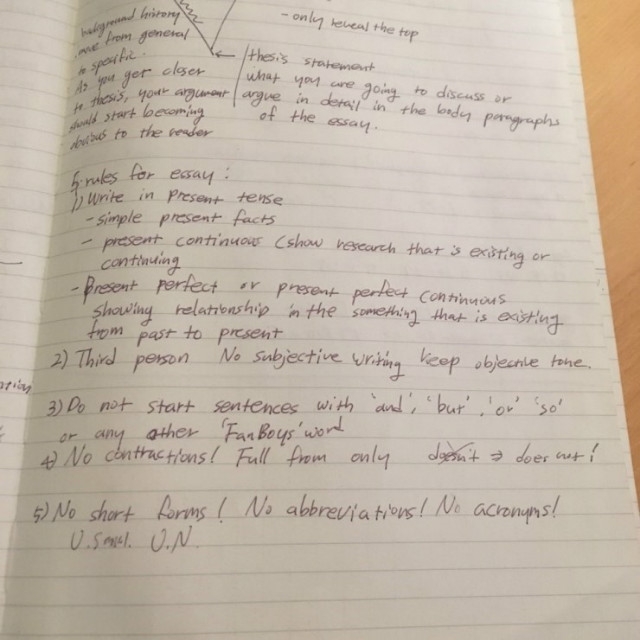 - only reveal the top
background history
move from general
to specific.
As you get closer
to thesis, your argument
should start becoming
obvious to the reader
thesis statement
what you are going to discuss or
argue in detail in the body paragraphs
of the essay.
5 rules for essay :
1) Write in present tense
- simple present facts
- present continuous (show research that is existing or
continuing
- Present perfect or present perfect continuous
showing relationship in the something that is existing
from past to present
2) Third person No subjective writing keep objective tone.
3) Do not start sentences with 'and', 'but', 'or' 'so'
or any other 'FanBoys' word
4) No contractions! Full from only doesn't ⇒ does not!
5) No short forms! No abbreviations! No acronyms!
U.N.